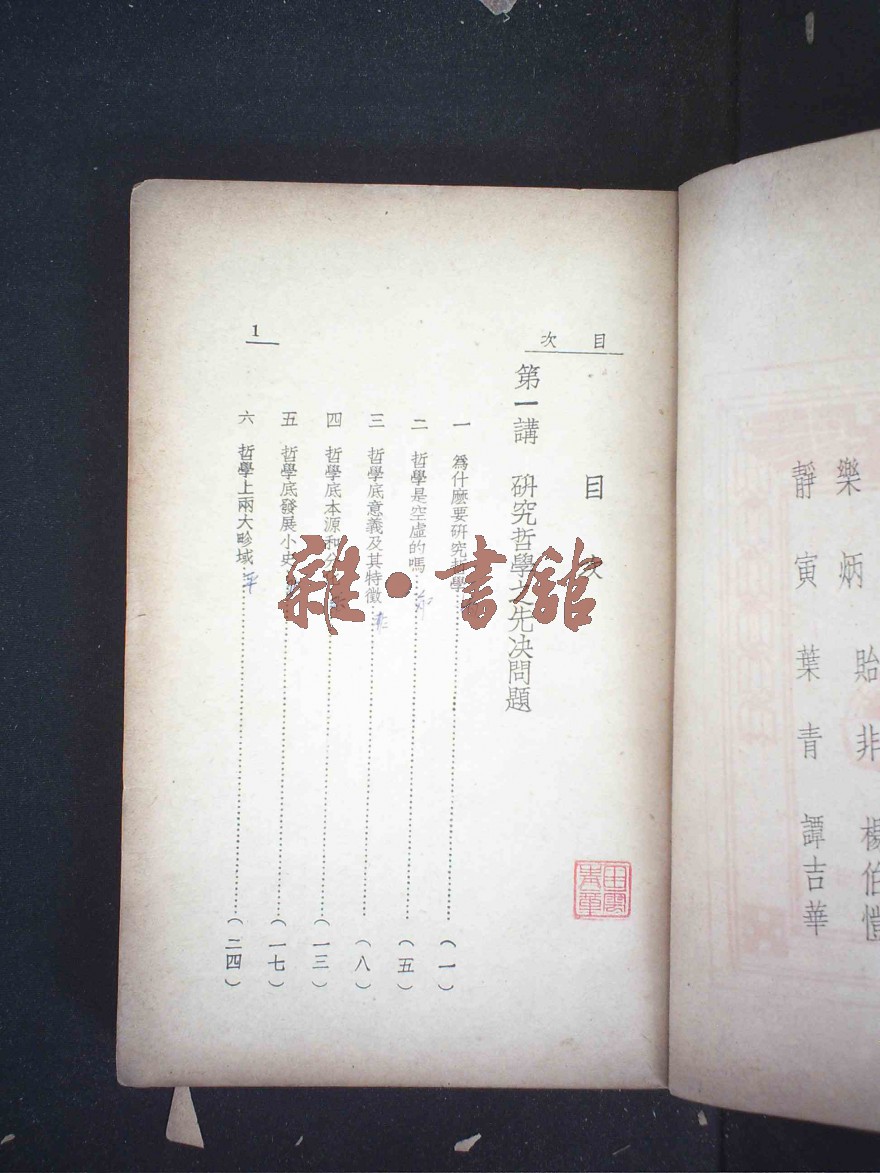 目次
1
目次
第一講 研究哲學之先决問題
一 爲什麽要研究哲學…(一)
二 哲學是空虛的嗎…(五)
三 哲學底意義及其特徵…(八)
四 哲學底本源和…(一三)
五 哲學底發展小史…(一七)
六 哲學上兩大畛域…平…(二四)
樂炳 貽非 楊伯愷
靜寅 葉青 譚吉華
雜·書館